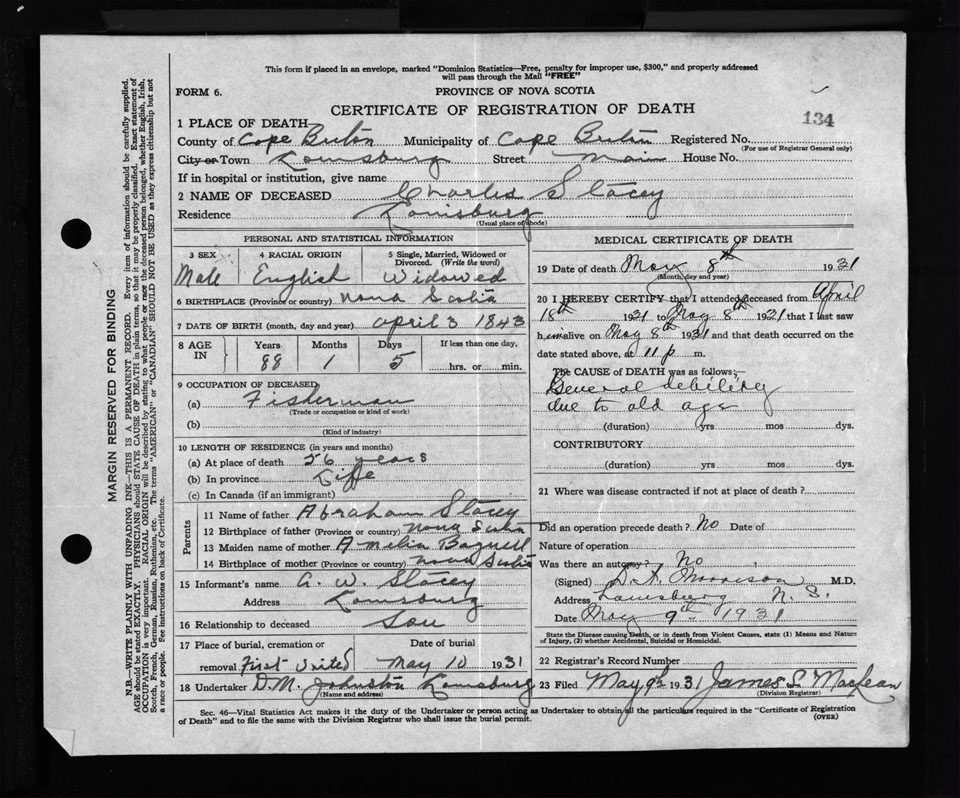 This form if placed in an envelope, marked "Dominion Statistics—Free, penalty for improper use, $300," and properly addressed
will pass through the Mail "FREE"
FORM 6.
PROVINCE OF NOVA SCOTIA
CERTIFICATE OF REGISTRATION OF DEATH
134
1 PLACE OF DEATH
County of Cape Breton Municipality of Cape Breton Registered No.
(For use of Registrar General only)
City or Town Louisburg Street Main House No.
If in hospital or institution, give name
2 NAME OF DECEASED Charles Stacey
Residence Louisburg
(Usual place of abode)
PERSONAL AND STATISTICAL INFORMATION
3 SEX
Male
4 RACIAL ORIGIN
English
5 Single, Married, Widowed or
Divorced. (Write the word)
Widowed
6 BIRTHPLACE (Province or country) Nova Scotia
7 DATE OF BIRTH (month, day and year) April 3 1843
8 AGE IN
Years Months Days If less than one day,
88 1 5 hrs. or min.
9 OCCUPATION OF DECEASED
(a) Fisherman
(Trade or occupation or kind of work)
(b)
(Kind of industry)
10 LENGTH OF RESIDENCE (in years and months)
(a) At place of death 56 years
(b) In province Life
(c) In Canada (if an immigrant)
Parents
11 Name of father Abraham Stacey
12 Birthplace of father (Province or country) Nova Scotia
13 Maiden name of mother Amelia Bagnell
14 Birthplace of mother (Province or country) Nova Scotia
15 Informant's name A. W. Stacey
Address Louisburg
16 Relationship to deceased Son
17 Place of burial, cremation or Date of burial
removal First United May 10 1931
18 Undertaker D.M. Johnston Louisburg
(Name and address)
MEDICAL CERTIFICATE OF DEATH
19 Date of death May 8th 1931
(Month, day and year)
20 I HEREBY CERTIFY that I attended deceased from April
18th 1921 to May 8th 1921 that I last saw
h im alive on May 8th 1931 and that death occurred on the
date stated above, at 11 p m.
The CAUSE of DEATH was as follows:
General debility
due to old age
(duration) yrs mos dys.
CONTRIBUTORY
(duration) yrs mos dys.
21 Where was disease contracted if not at place of death?
Did an operation precede death? No Date of
Nature of operation
Was there an autopsy? No
(Signed) D.A. Morrison M.D.
Address Louisburg N. S.
Date May 9th 1931
State the Disease causing Death, or in death from Violent Causes, state (1) Means and Nature
of Injury, (2) whether Accidental, Suicidal or Homicidal.
22 Registrar's Record Number
23 Filed May 9th 1931 James S. MacLean
(Division Registrar)
Sec. 46—Vital Statistics Act makes it the duty of the Undertaker or person acting as Undertaker to obtain all the particulars required in the "Certificate of Registration
of Death" and to file the same with the Division Registrar who shall issue the burial permit.
(OVER)
MARGIN RESERVED FOR BINDING
N.B.—WRITE PLAINLY WITH UNFADING INK—THIS IS A PERMANENT RECORD. Every item of information should be carefully supplied.
AGE should be stated EXACTLY. PHYSICIANS should STATE CAUSE OF DEATH in plain terms, so that it may be properly classified. Exact statement of
OCCUPATION is very important. RACIAL ORIGIN will be described by stating to what people or race the deceased person belonged, whether English, Irish,
Scotch, French, German, Russian, Ruthenian, etc. The terms "AMERICAN" or "CANADIAN" SHOULD NOT BE USED as they express citizenship but not
a race or people. See instructions on back of Certificate.